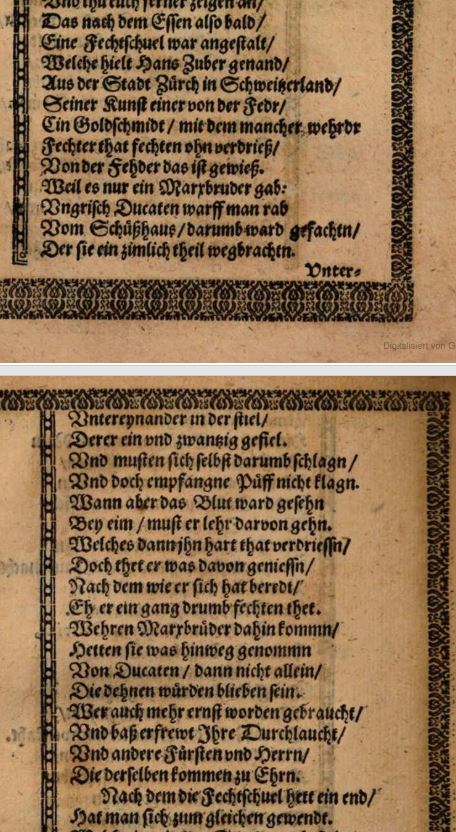 Vnd ihn euch ferner zeigen an/
Das nach dem Essen also bald/
Eine Fechtschuel war angestalt/
Welche hielt Hans Zuber genand/
Aus der Stadt Zürch in Schweitzerland/
Seiner Kunst einer von der Fedr/
Ein Goldschmidt / mit dem mancher wehrdr
Fechter that fechten ohn verdrieß/
Von der Fehder das ist gewieß.
Weil es nur ein Marxbruder gab:
Vngrisch Ducaten warff man rab
Vom Schüßhaus / darumb ward gefachtn/
Der sie ein zimlich theil wegbrachtn.
Vnter-
Digitalisiert von G
Vntereynander in der stiel/
Derer ein vnd zwantzig gefiel.
Vnd musten sich selbst darumb schlagn /
Vnd doch empfangne Püff nicht klagn.
Wann aber das Blut ward gesehn
Bey eim / must er lehr darvon gehn.
Welches dann jhn hart that verdriessn/
Doch thet er was davon geniessn/
Nach dem wie er sich hat beredt/
Eh er ein gang drumb fechten thet.
Wehren Marxbrüder dahin kommn/
Hetten sie was hinweg genommn
Von Ducaten / dann nicht allein/
Die dehnen würden blieben sein.
Wer auch mehr ernst worden gebraucht/
Vnd baß erfrewt Ihre Durchlaucht/
Vnd andere Fürsten vnd Herrn/
Die derselben kommen zu Ehrn.
Nach dem die Fechtschuel hett ein end/
Hat man sich zum gleichen gewendt.